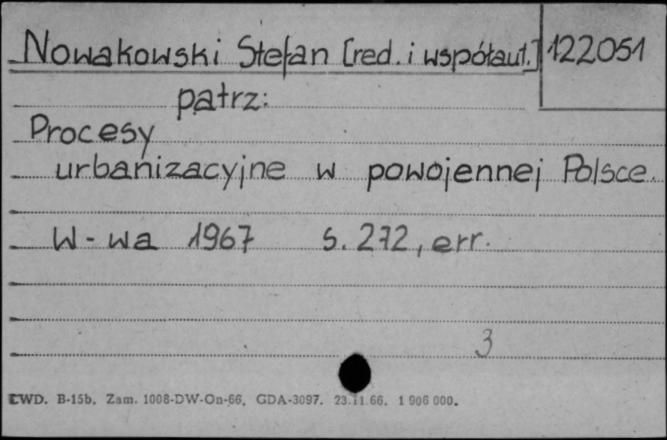 Nowakowski Stefan [red. i współaut.] 122051
patrz:
Procesy
urbanizacyjne w powojennej Polsce.
W-wa 1967 s. 272, err.
3
CWD. B-15b. Zam. 1008-DW-On-66. GDA-3097. 23.11.66. 1 906 000.